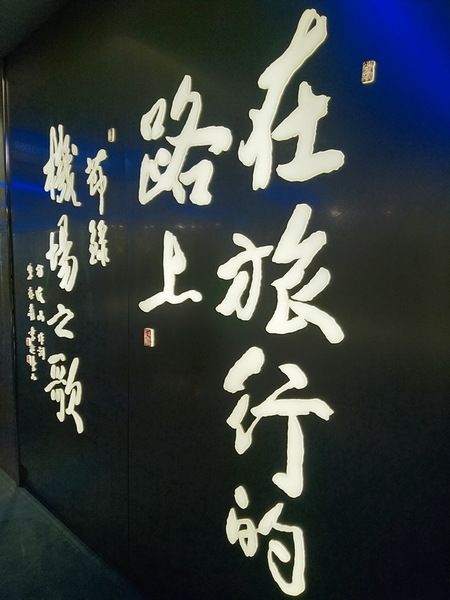 在旅行的
路上
節錄
機場之歌